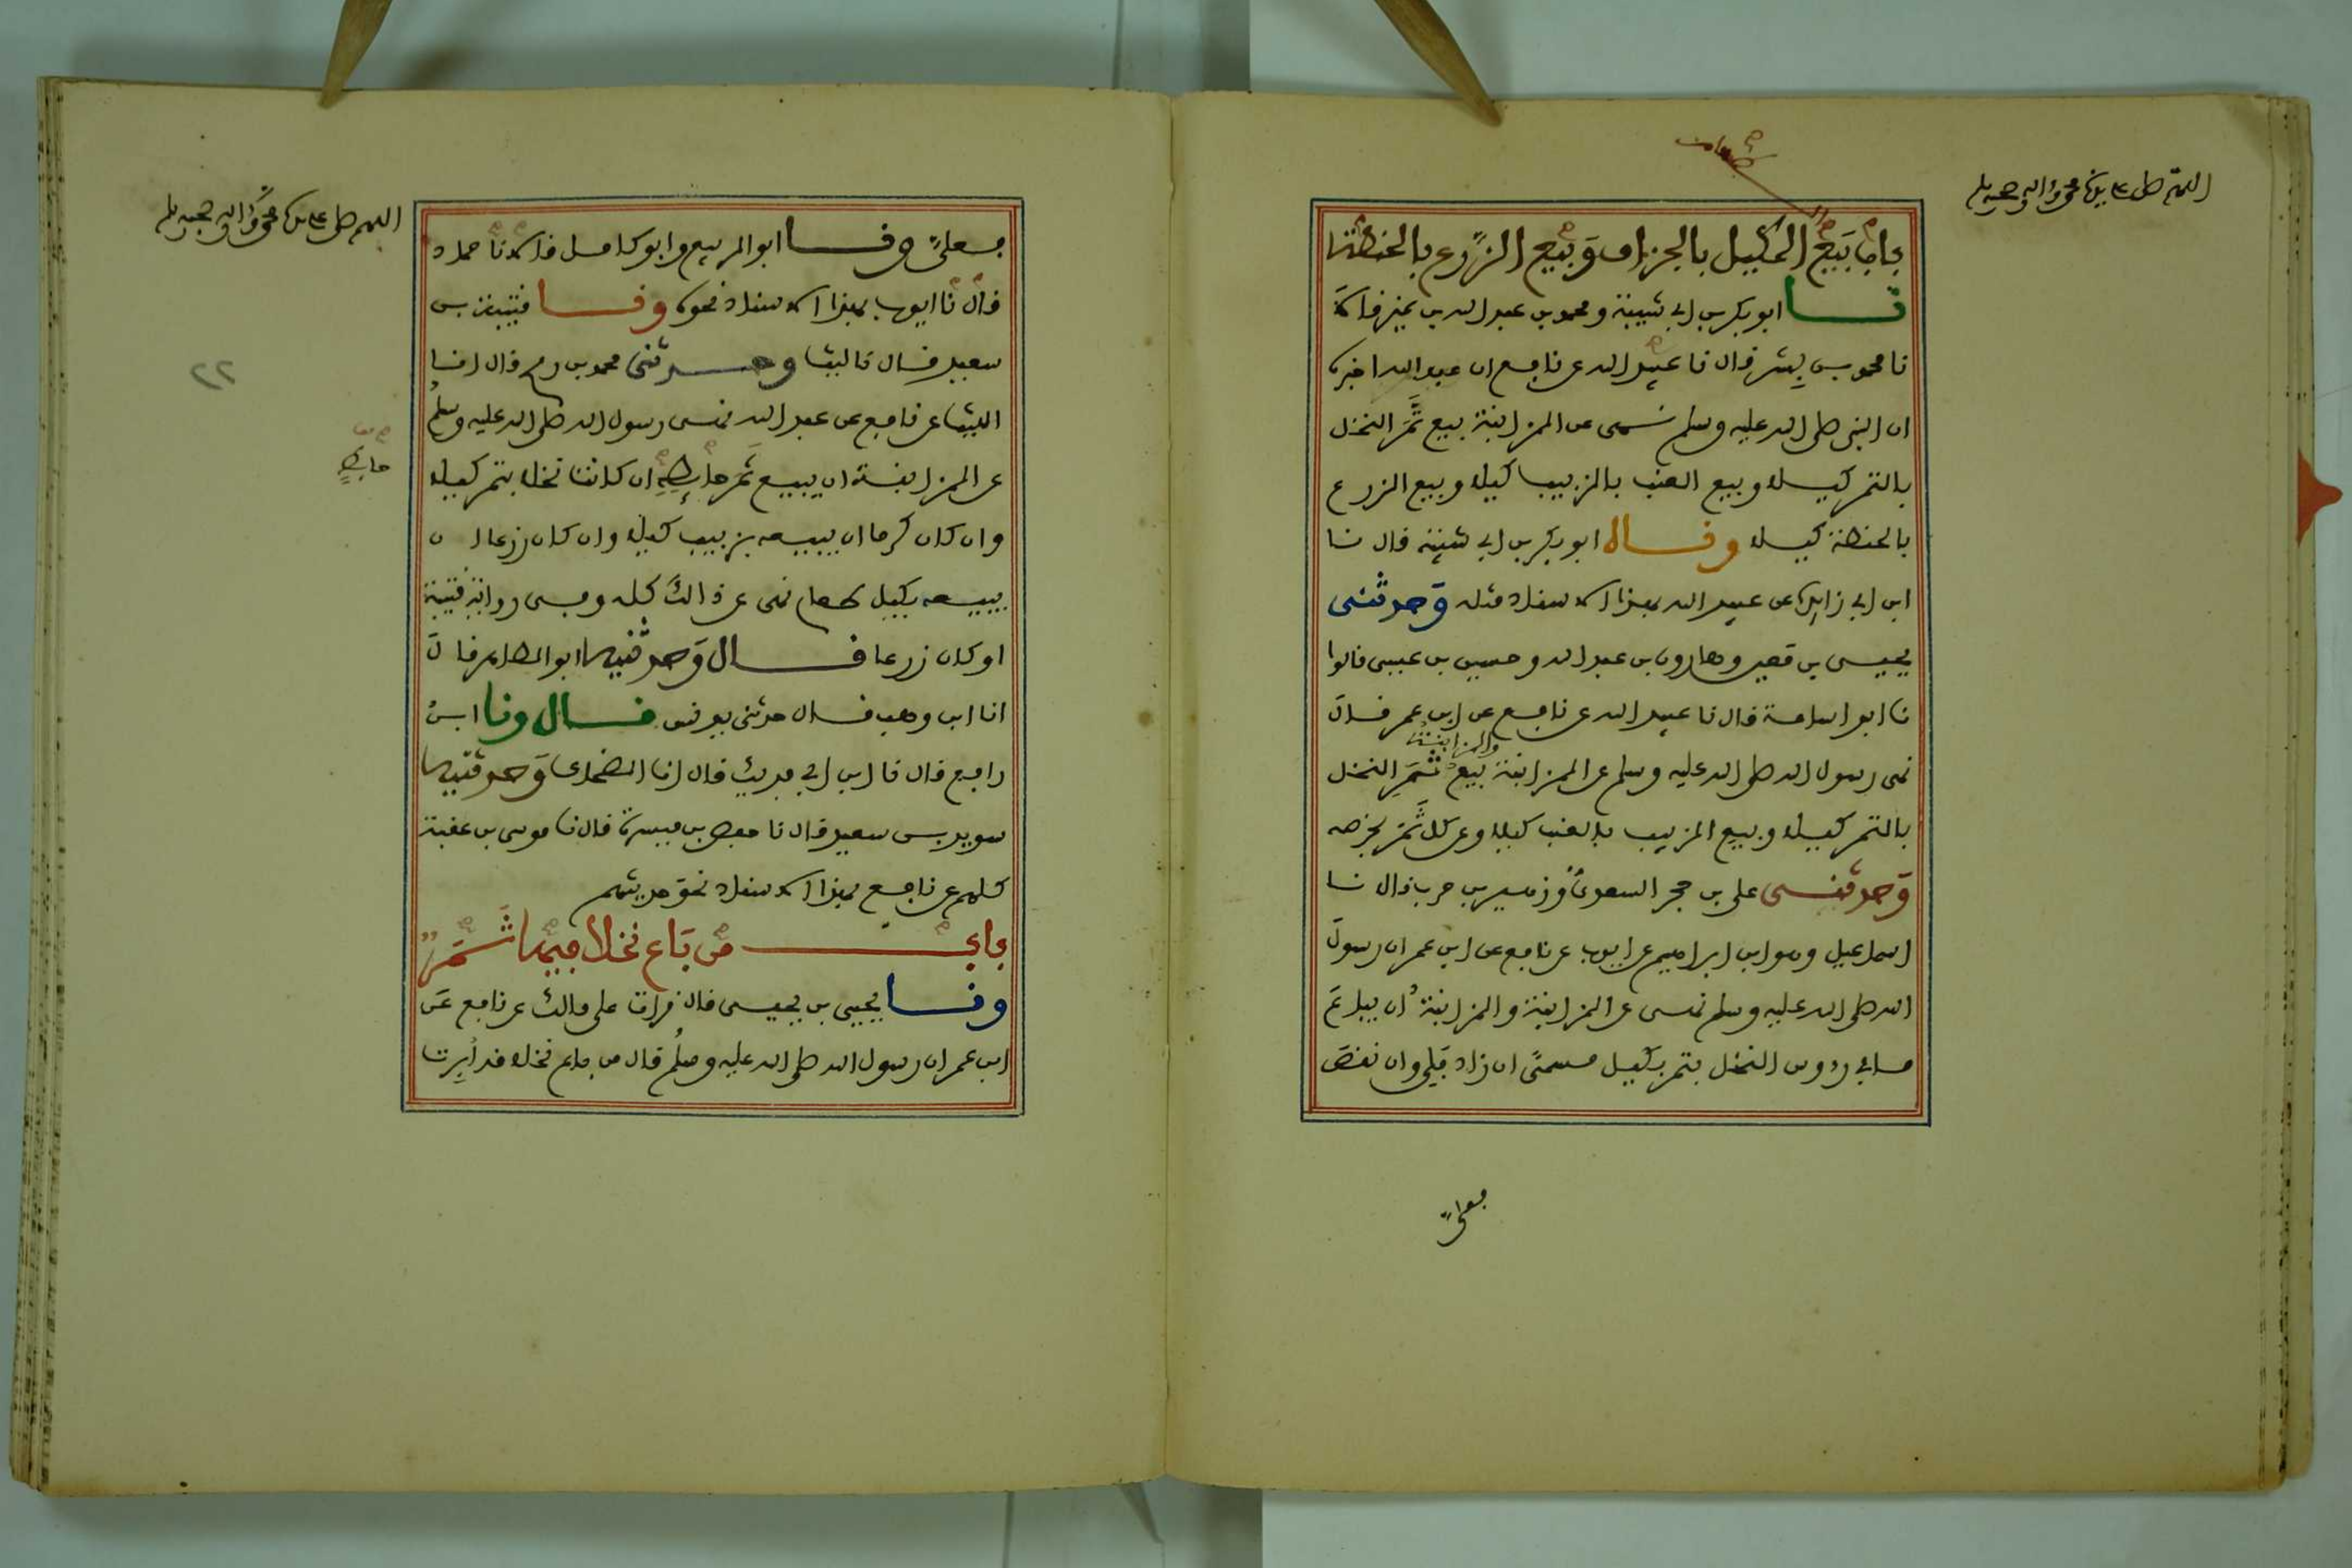 اللهم صل على سيدنا محمد وءاله وصحبه وسلم
باب بيع المكيل بالجزاف وبيع الزرع بالحنطة
نا ابو بكر بن ابي شيبة ومحمد بن عبد الله بن نمير قالا
نا محمد بن بشر قال نا عبيد الله عن نافع ان عبد الله اخبره
ان النبي صلى الله عليه وسلم نهى عن المزابنة بيع ثمر النخل
بالتمر كيلا وبيع العنب بالزبيب كيلا وبيع الزرع
بالحنطة كيلا وقال ابو بكر بن ابي شيبة قال نا
ابن ابي زايدة عن عبيد الله بهذا الاسناد مثله وحدثني
يحيى بن معين وهارون بن عبد الله وحسين بن عيسى قالوا
نا ابو اسامة قال نا عبيد الله عن نافع عن ابن عمر قال
والمزابنة
نهى رسول الله صلى الله عليه وسلم عن المزابنة بيع ثمر النخل
بالتمر كيلا وبيع الزبيب بالعنب كيلا وعن كل ثمر بخرصه
وحدثني علي بن حجر السعدي وزهير بن حرب قال نا
اسماعيل وهو ابن ابراهيم عن ايوب عن نافع عن ابن عمر ان رسول
الله صلى الله عليه وسلم نهى عن المزابنة والمزابنة ان يباع
ما في رءوس النخل بتمر بكيل مسمى ان زاد فلي وان نقص
فعلي
اللهم صل على سيدنا محمد وءاله وصحبه وسلم
فعلي ونا ابو الربيع وابو كامل قالا نا حماد
قال نا ايوب بهذا الاسناد نحوه ونا قتيبة بن
سعيد قال نا ليث وحدثني محمد بن رمح قال انا
٢٢
الليث عن نافع عن عبد الله نهى رسول الله صلى الله عليه وسلم
عن المزابنة ان يبيع ثمر حايطه ان كانت نخلا بتمر كيلا
حايط
وان كان كرما ان يبيعه بزبيب كيلا وان كان زرعا ان
يبيعه بكيل طعام نهى عن ذالك كله وفي رواية قتيبة
او كان زرعا قال وحدثنيه ابو الطاهر قال
انا ابن وهب قال حدثني يونس قال ونا ابن
رافع قال نا ابن ابي فديك قال انا الضحاك وحدثنيه
سويد بن سعيد قال نا حفص بن ميسرة قال نا موسى بن عقبة
كلهم عن نافع بهذا الاسناد نحو حديثهم
باب من باع نخلا فيها ثمر
ونا يحيى بن يحيى قال قرات على مالك عن نافع عن
ابن عمر ان رسول الله صلى الله عليه وسلم قال من باع نخلا قد أبرت